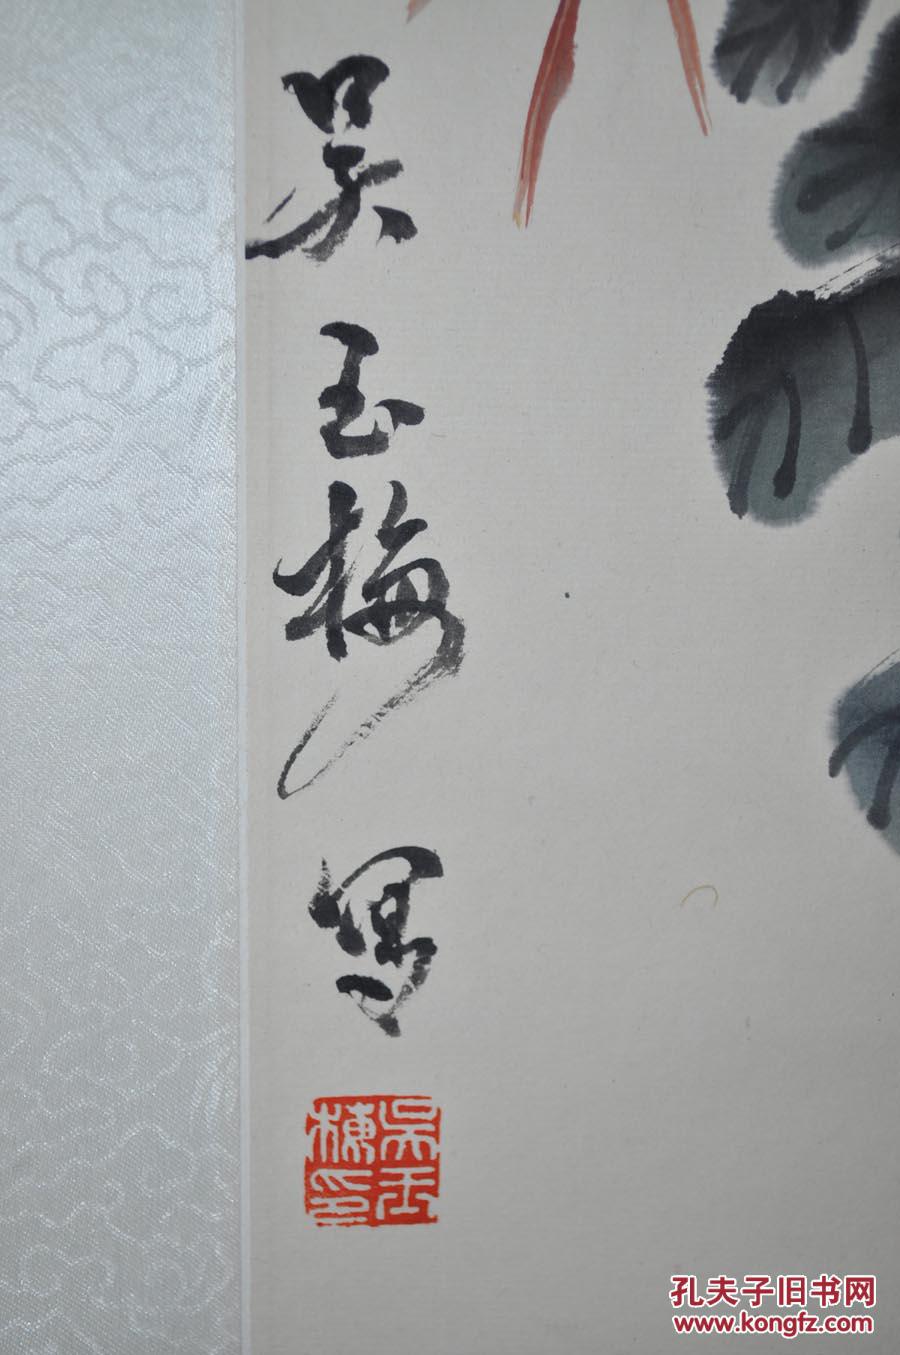 吴玉梅写
吳玉
梅印
孔夫子旧书网
www.kongfz.com